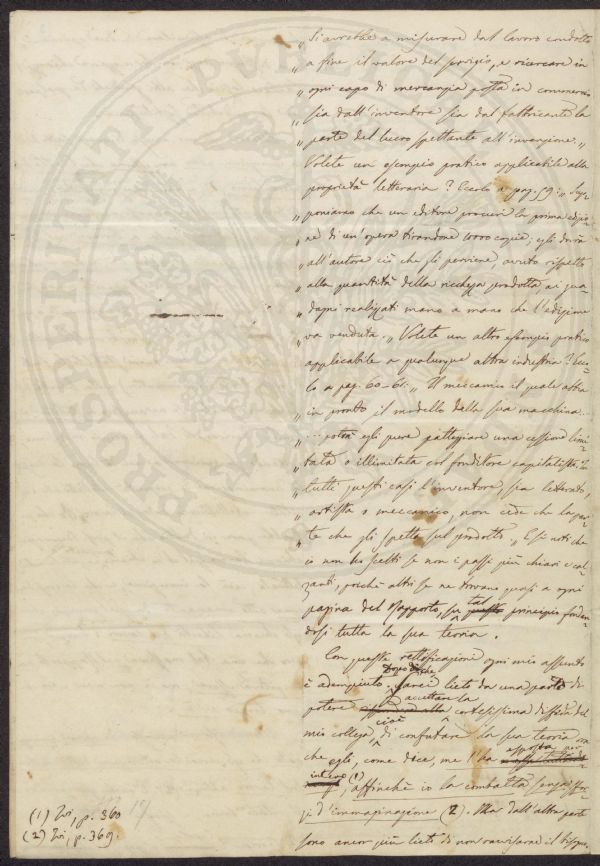 „ Si avrebbe a misurare dal lavoro condotto
„ a fine il valore del servigio, e ricercare in
„ ogni capo di mercanzia posta in commercio
„ sia dall'inventore sia dal fabbricante la
„ parte del lucro spettante all'invenzione. „
Volete un esempio pratico applicabile alla
proprietà letteraria? Eccolo a pag. 59: „ Sup-
„ poniamo che un editore procuri la prima edizio-
„ ne di un'opera tirandone 1000 copie; egli dovrà
„ all'autore ciò che gli perviene, avuto rispetto
„ alla quantità della ricchezza prodotta ai gua-
„ dagni realizzati mano a mano che l'edizione
„ va venduta. „ Volete un altro esempio pratico
applicabile a qualunque altra industria? Ecco-
lo a pag. 60-61: „ Il meccanico il quale abbia
„ in pronto il modello della sua macchina...
„ ... potrà egli pure patteggiare una cessione limi-
„ tata o illimitata col fonditore capitalista. In
„ tutti questi casi l'inventore, sia letterato,
„ artista o meccanico, non cede che la par-
„ te che gli spetta sul prodotto. „ E si noti che
io non ho scelti se non i passi più chiari e cal-
zanti, poichè altri se ne trovano quasi a ogni
pagina del Rapporto, su tal questo principio fondan-
dosi tutta la sua teoria.
Con queste rettificazioni ogni mio assunto
è adempiuto. Dopo di che sarei lieto da una parte di
potere accettare la cortesissima disfida del
mio collega, cioè di confutare la sua teoria
che egli, come dice, me l'ha apposta per
intero (1), affinchè io la combatta senza sfor-
zi d'immaginazione (2). Ma dall'altra parte
sono ancor più lieto di non ravvisare il bisogno
(1) Ivi, p. 360
(2) Ivi, p. 369.
POSTERITATI PVBLICO